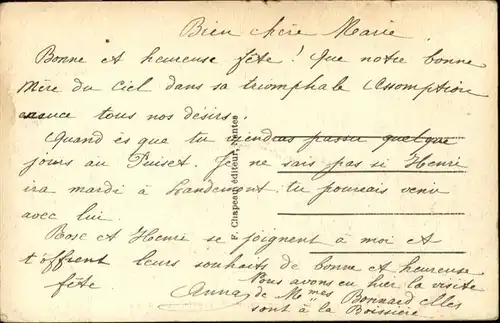 Bien chère Marie
Bonne et heureuse fête ! Que notre bonne
Mère du Ciel dans sa triomphale Assomption
exauce tous nos désirs.
Quand es que tu viendras passer quelque
jours au Puiset. Je ne sais pas si Henri
ira mardi à Landemont tu pourrais venir
avec lui.
Rose et Henri se joignent à moi et
t'offrent leurs souhaits de bonne et heureuse
fête
Anna
Nous avons eu hier la visite
de Mmes Bonnard elles
sont à la Boissière
F. Chapeau, éditeur, Nantes